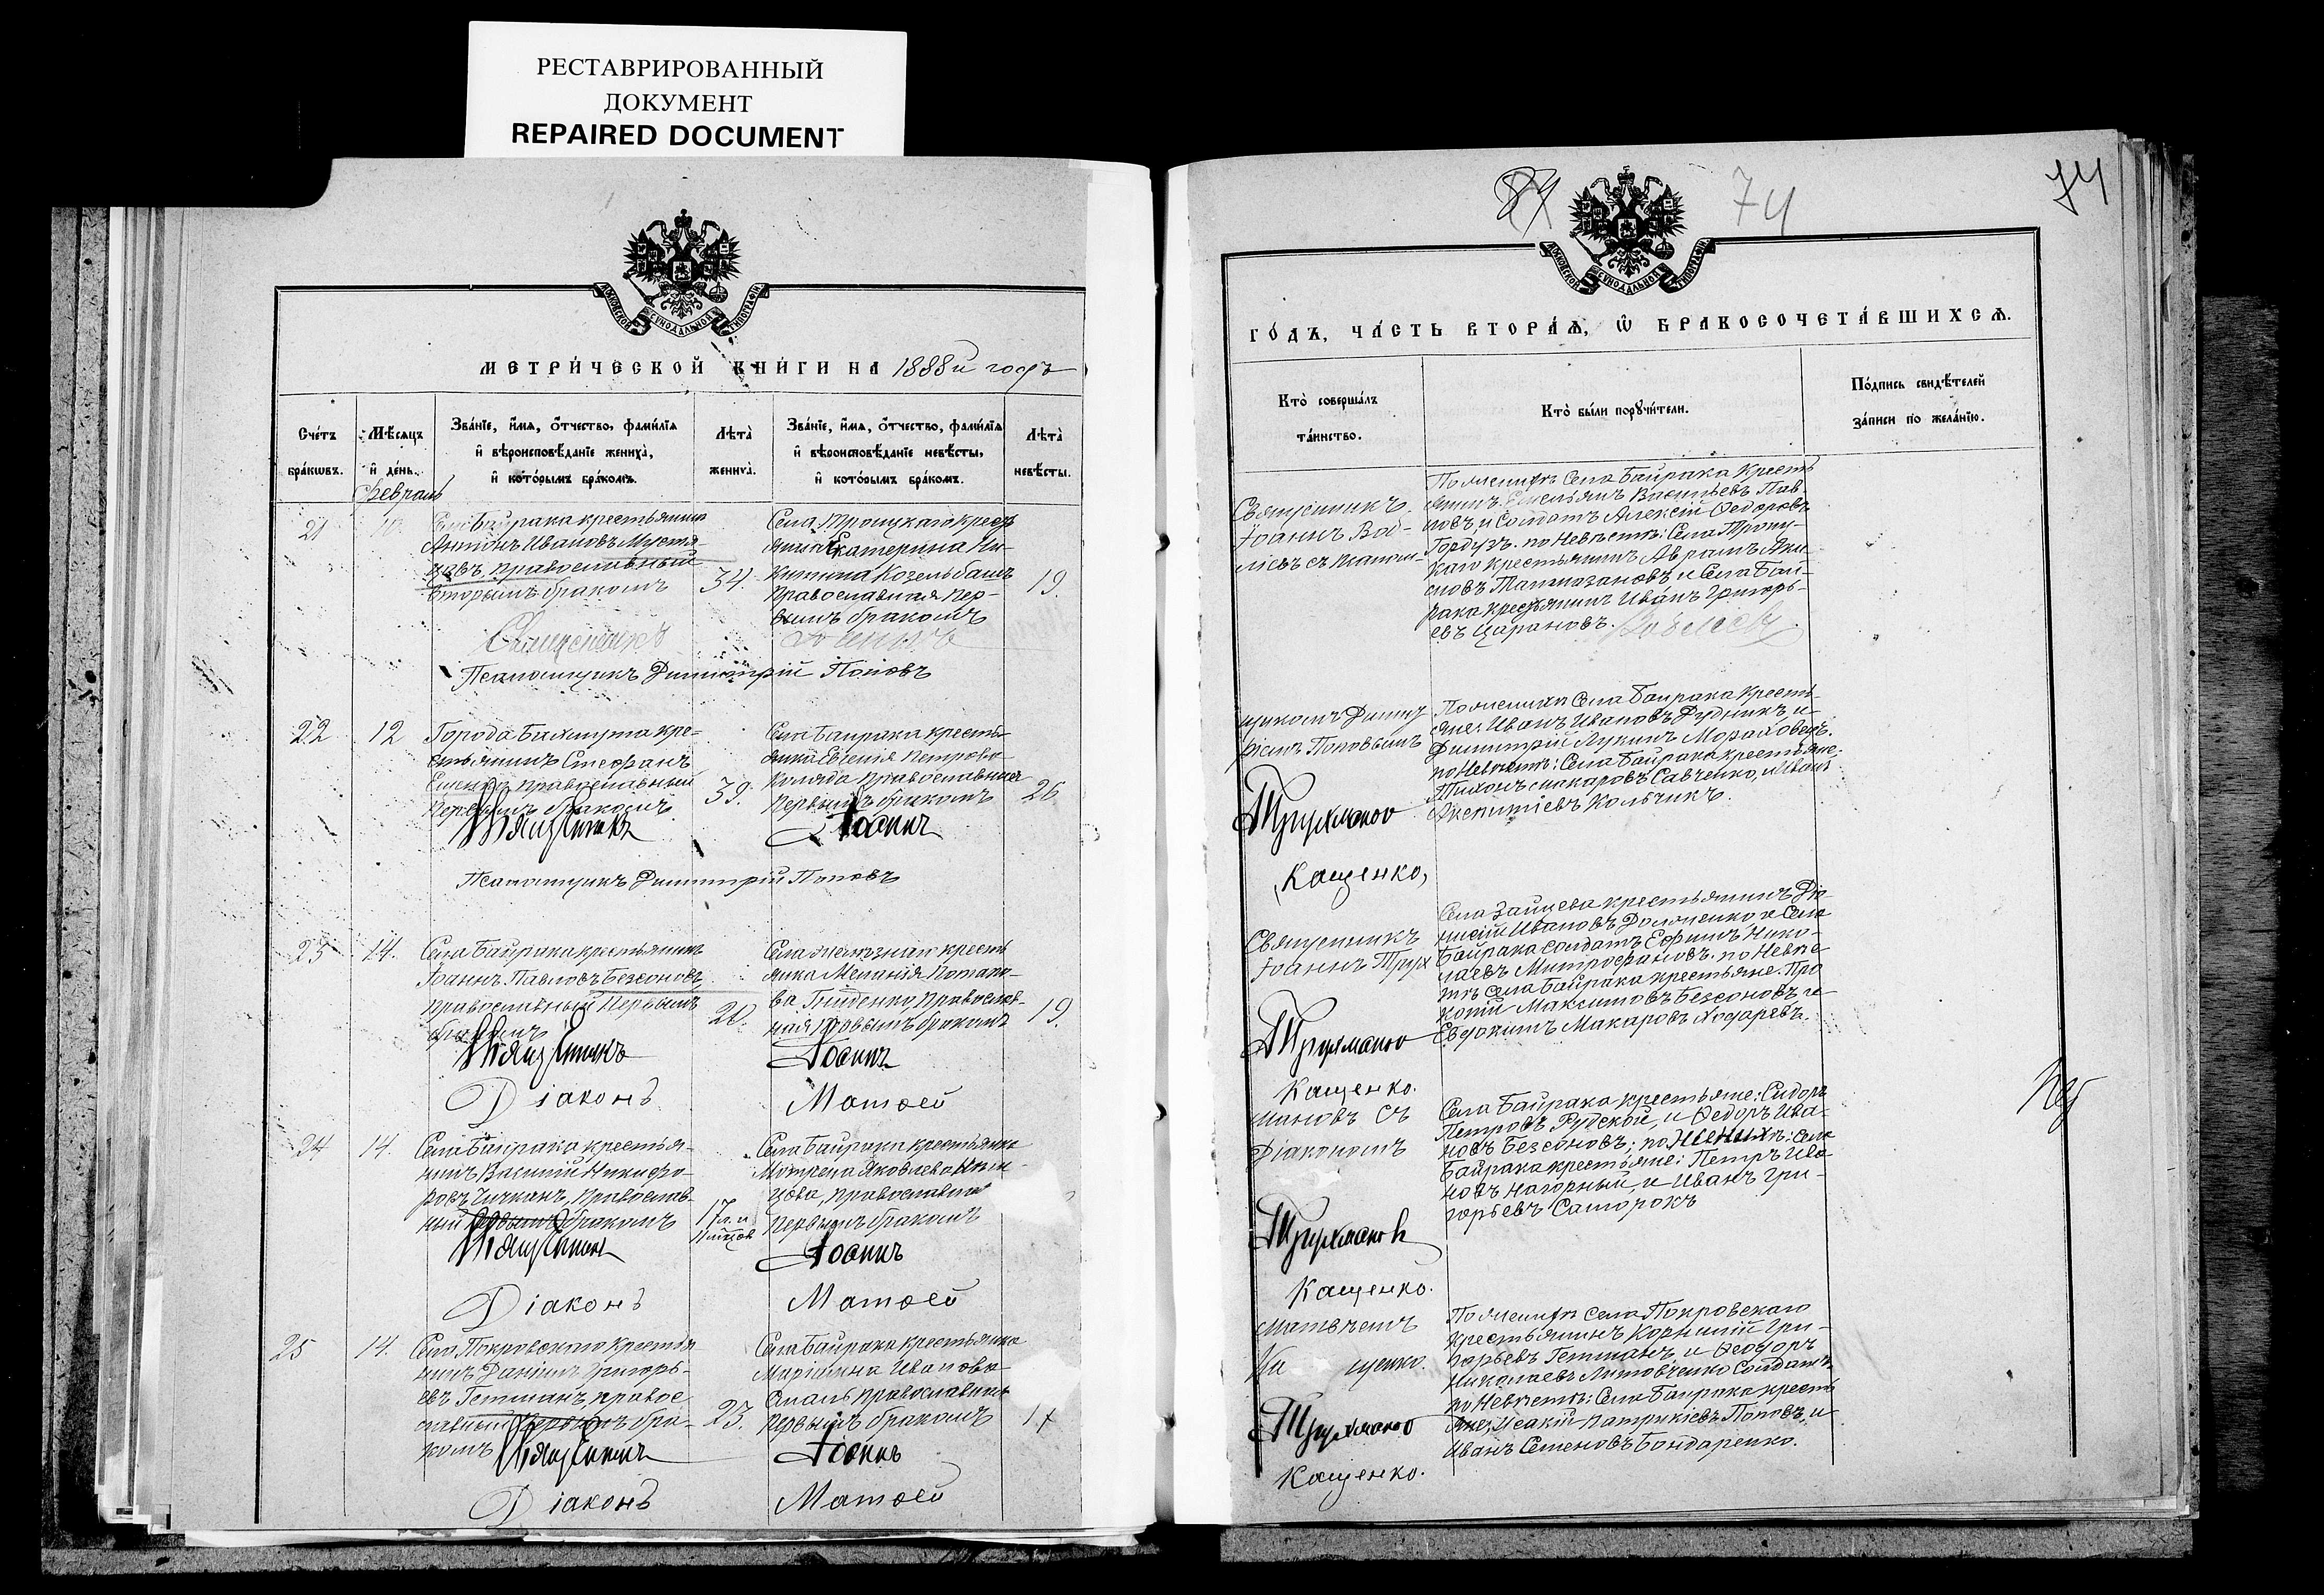 РЕСТАВРИРОВАННЫЙ
ДОКУМЕНТ
REPAIRED DOCUMENT
МОСКОВСКОЙ СУНОДАЛЬНОЙ ТИПОГРАФІИ
МЕТРИЧЕСКОЙ КНИГИ НА 1888й годъ
Счетъ браковъ.
Мѣсяцъ и день.
Званіе, имя, отчество, фамилія
и вѣроисповѣданіе жениха,
и которымъ бракомъ.
Лѣта жениха.
Званіе, имя, отчество, фамилія
и вѣроисповѣданіе невѣсты,
и которымъ бракомъ.
Лѣта невѣсты.
Февраль
21
10.
Села Байрака крестьянинъ
Антонъ Ивановъ
православный
вторымъ бракомъ
34.
Села Троицкаго кресть
янка Екатерина Ни-
китина Козельбашъ
Православная пер-
вымъ бракомъ
19.
Священникъ Іоаннъ
Псаломщикъ Димитрій Поповъ
22
12
Города Бахмута кре-
стьянинъ Стефанъ
православный
Первымъ бракомъ
39.
Села Байрака кресть-
янка Евгенія Петрова
Коляда православная
первымъ бракомъ
26
Священникъ Іоаннъ
Псаломщикъ Димитрій Поповъ
23
14.
Села Байрака крестьянинъ
Іоаннъ Павловъ Безсоновъ
православный Первымъ
бракомъ
20.
Села Желѣзнаго кресть
янка Меланія Потапо-
ва Гниденко, православ-
ная первымъ бракомъ
19.
Священникъ Іоаннъ
Діаконъ Матѳей
24
14.
Села Байрака крестья-
нинъ Василій Никифо-
ровъ православ-
ный первымъ бракомъ
17 л. и
Села Байрака крестьянка
Мотрона Яковлева
православная
первымъ бракомъ
Священникъ Іоаннъ
Діаконъ Матѳей
25
14.
Села Покровскаго крестья
нинъ Даніилъ Григорь-
евъ Гетманъ, право
славный первымъ бра-
комъ
23.
Села Байрака крестьянка
Маріанна Иванова
православная
первымъ бракомъ
17
Священникъ Іоаннъ
Діаконъ Матѳей
84
74
74
МОСКОВСКОЙ СУНОДАЛЬНОЙ ТИПОГРАФІИ
ГОДЪ, ЧАСТЬ ВТОРАЯ, Ѡ БРАКОСОЧЕТАВШИХСЯ.
Кто совершалъ таинство.
Кто были поручители.
Подпись свидѣтелей
записи по желанію.
Священникъ
Іоаннъ Вой-
съ псалом-
По женихѣ Села Байрака кресть
янинъ Емельянъ Васильевъ Пав-
ловъ и Солдатъ Алексій Ѳедоровъ
Гордузъ. по Невѣстѣ: Села Троиц-
каго крестьянинъ Аврамъ
и Села Бай-
рака крестьянинъ Иванъ Григорь-
евъ Царановъ.
щикомъ Димит
ріемъ Поповымъ
Трухмановъ
Кащенко,
По женихѣ Села Байрака кресть-
яне: Иванъ Ивановъ Рудникъ, и
Димитрій Лукинъ Мораховецъ.
по Невѣстѣ: Села Байрака крестьяне:
Тихонъ Макаровъ Савченко, и Иванъ
Кольчикъ.
Священникъ
Іоаннъ Трух
Трухмановъ
Кащенко.
Села Зайцева крестьянинъ Діо-
нисій Ивановъ и Села
Байрака солдатъ Ефимъ Нико-
лаевъ Митрофановъ. по Невѣс
тѣ Села Байрака крестьяне: Про
копій Максимовъ Безсоновъ и
Евдокимъ Макаровъ Ходаревъ.
мановъ съ
Діакономъ
Трухмановъ
Кащенко.
Села Байрака крестьяне: Сидоръ
Петровъ Рудской, и Ѳедоръ Ива-
новъ Безсоновъ; по Невѣстѣ: Села
Байрака крестьяне: Петръ Ива
новъ Нагорный, и Иванъ Гри-
горьевъ Саморокъ
Матвѣемъ
Ка щенко.
Трухмановъ
Кащенко.
По женихѣ села Покровскаго
крестьянинъ Корнилій Гри-
горьевъ Гетманъ, и Ѳеодоръ
Николаевъ Литовченко Солдатъ.
по Невѣстѣ: Села Байрака кресть
яне; Исакій Патрикіевъ Поповъ, и
Иванъ Семеновъ Бондаренко.